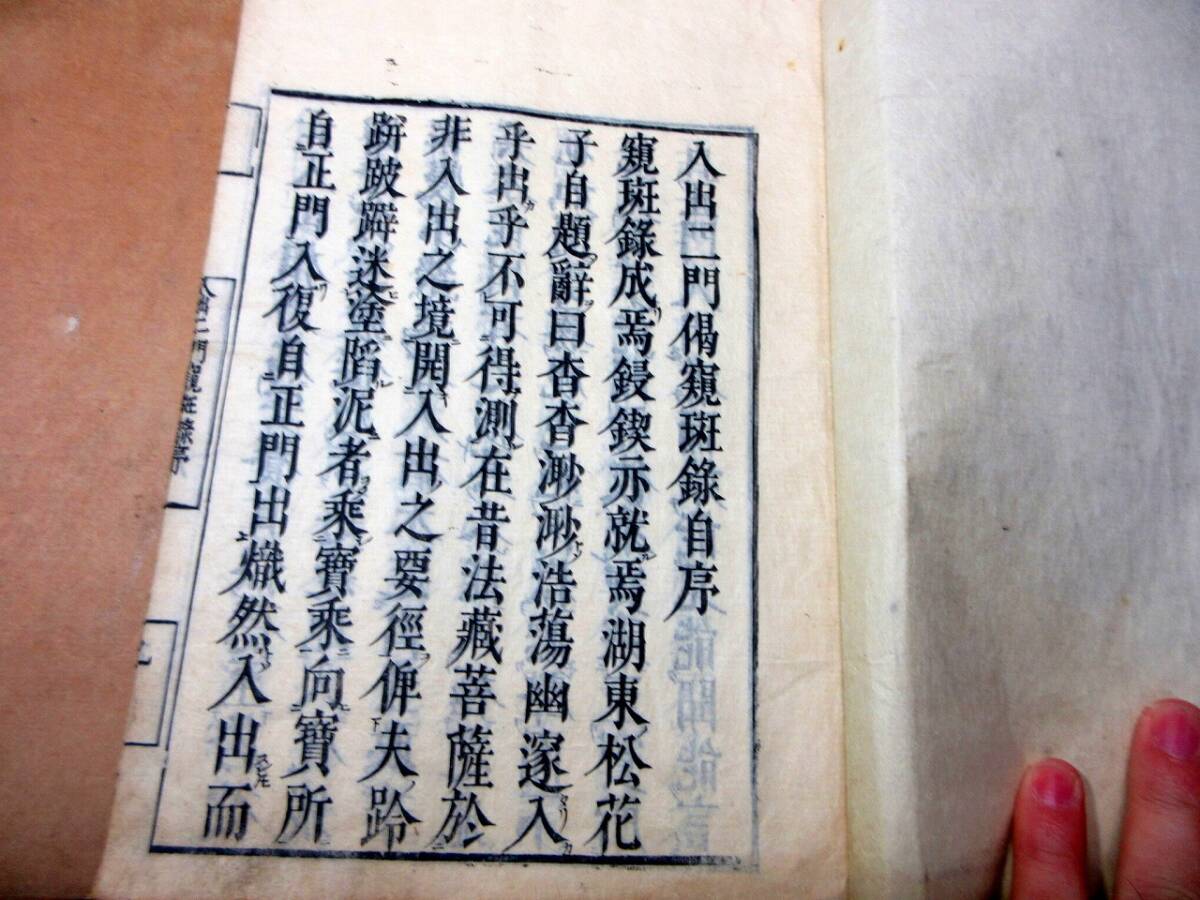 入出二門偈窺斑錄自序
窺斑錄成焉鋟鍥亦就焉湖東松花
子自題辭曰杳杳渺渺浩蕩幽邃入
乎出乎不可得測在昔法藏菩薩於
非入出之境開入出之要徑俾夫跉
跰跛躃迷塗陷泥者乘寶乘向寶所
自正門入復自正門出熾然入出而
入出二門窺斑錄序